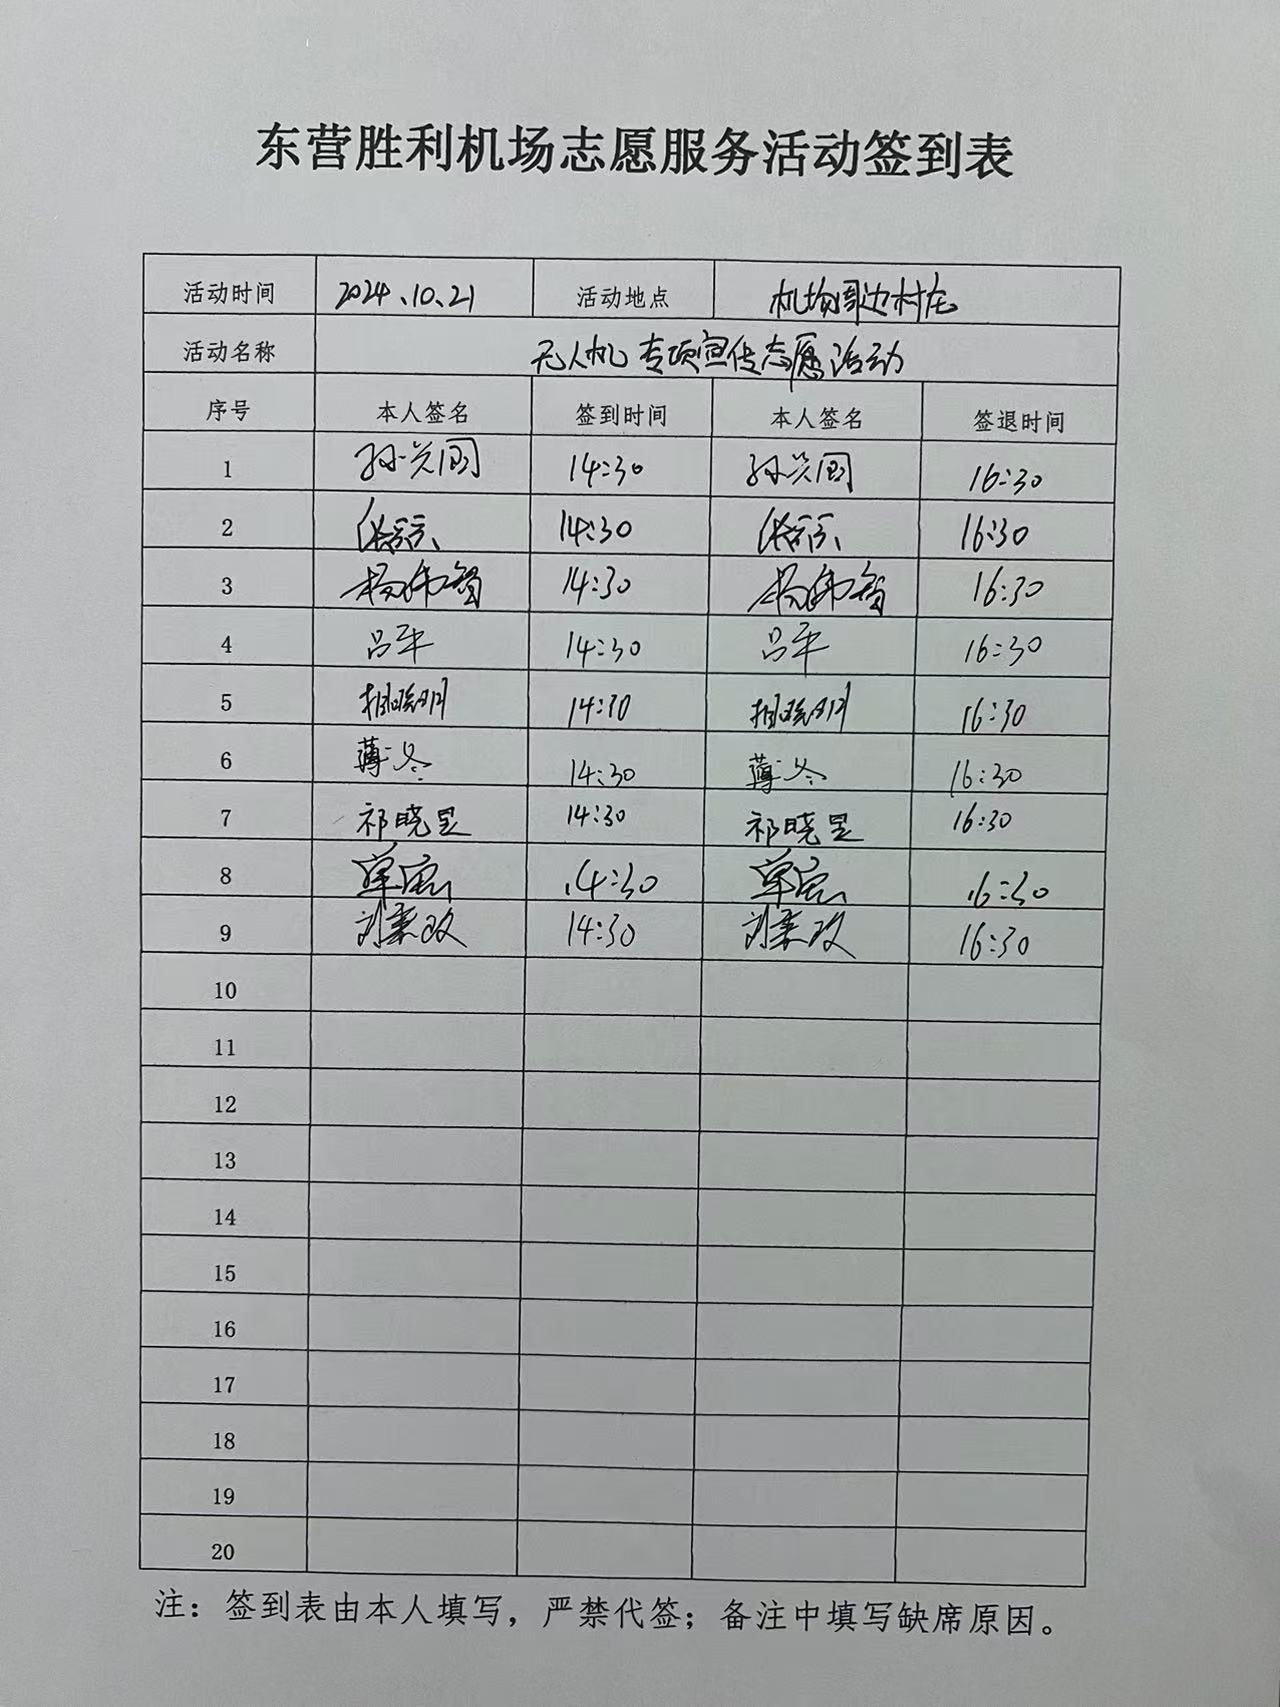 东营胜利机场志愿服务活动签到表
活动时间 2024.10.21 活动地点 机场周边村庄
活动名称 无人机专项宣传志愿活动
序号 本人签名 签到时间 本人签名 签退时间
1 孙兴国 14:30 孙兴国 16:30
2 14:30 16:30
3 杨伟智 14:30 杨伟智 16:30
4 吕平 14:30 吕平 16:30
5 14:30 16:30
6 薄冬 14:30 薄冬 16:30
7 祁晓昱 14:30 祁晓昱 16:30
8 14:30 16:30
9 14:30 16:30
10
11
12
13
14
15
16
17
18
19
20
注：签到表由本人填写，严禁代签；备注中填写缺席原因。